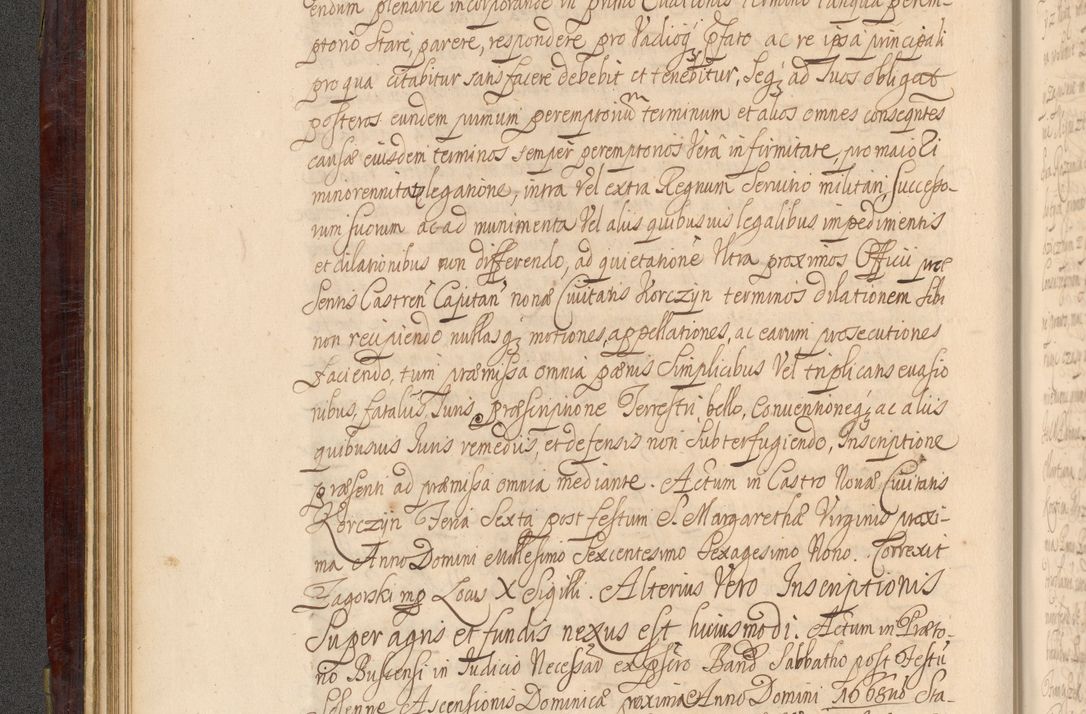 endum plenarie incorporande in primo Citationis Termino tanquam perem-
ptorio Stare, parere, respondere pro Vadioq; pfato ac re ipsa principali
pro qua citabitur satisfacere debebit et tenebitur, Seq; ad Suos obligat
posteros eundem primum peremptoriũ terminum et alios omnes conseqntes
causæ eiusdem terminos semper peremptorios Verâ infirmitate, pro maiori
minorennitate legatione, intra Vel extra Regnum Servitio militari, Successo-
rum suorum ac ad munimenta Vel aliis quibusvis legalibus impedimentis
et dilationibus non differendo, ad quietationē Vtra proximos Officii præ
Sentis Castren Capitan novæ Civitatis Korczyn terminos dilationem Sibi
non recipiendo nullasq; motiones, appellationes, ac earum prosecutiones
faciendo, tum præmissa omnia pænis Simplicibus Vel triplicans evasio
nibus, fatalius, Iuris præscriptione Terrestri bello, Conventioneq; ac aliis
quibusvis Iuris remediis, et defensis non Subterfugiendo, Inscriptione
præsenti ad præmissa omnia mediante. Actum in Castro Novæ Civitatis
Korczyn Feria Sexta post festum S. Margarethæ Virginis proxi-
ma Anno Domini Millesimo Sexcentesimo Sexagesimo Nono. Correxit
Zagorski mp Locus X Sigilli. Alterius Vero Inscriptionis
Super agris et fundis nexus est huiusmodi. Actum in Præto-
rio Buscensi in Iudicio Necessar expōsito Bano Sabbatho post Festū
Solenne Ascensionis Dominicæ proxima Anno Domini 1668vo Sta-